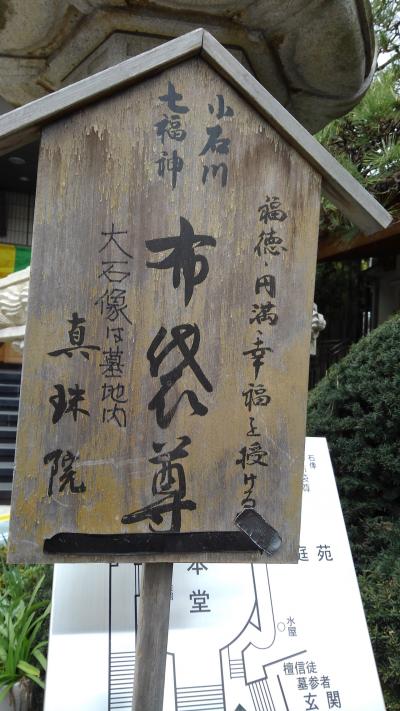 小石川
七福神
福徳・円満・幸福を授ける
布袋尊
大石像は墓地内
真珠院
本堂
庭苑
水屋
檀信徒
墓参者
玄関